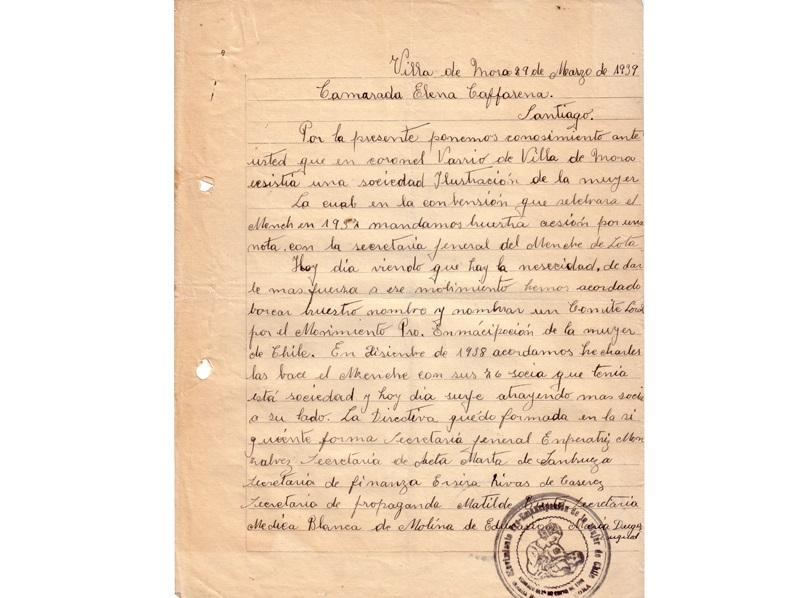 Villa de Mora 29 de Marzo de 1939
Camarada Elena Caffarena.
Santiago.
Por la presente ponemos conosimiento ante
usted que en coronel Varrio de Villa de Mora
ecsistia una sociedad Ilustración de la muyer
La cual en la conbensión que selebrara el
Mench en 193 mandamos nuestra acsión por una
nota, con la secretaria general del Menche de Lota
Hoy dia viendo que hay la nesecidad, de dar
le mas fuerza a ese motimiento hemos acordado
borear nuestro nombro y nombrar un Comite Local
por el Movimiento Pro. Enmacipoción de la muyer
de Chile. En Disienbre de 1938 acordamos hecharles
las bace el Menche con sus 26 socia que tenia
está sociedad y hoy dia surje atrayendo mas socia
a su lado. La Directiva quedo formada en la si
guiente forma Secretaria general Enperatriz Mon
salvez Secretaria de Acta Marta de Sanhueza
Secretaria de finanza Ersira Rivas de Caserez
Secretaria de propaganda Matilde Secretaria
Medica Blanca de Molina de Educasion Maria
Movimiento Pro-Emancipación de la Mujer de Chile